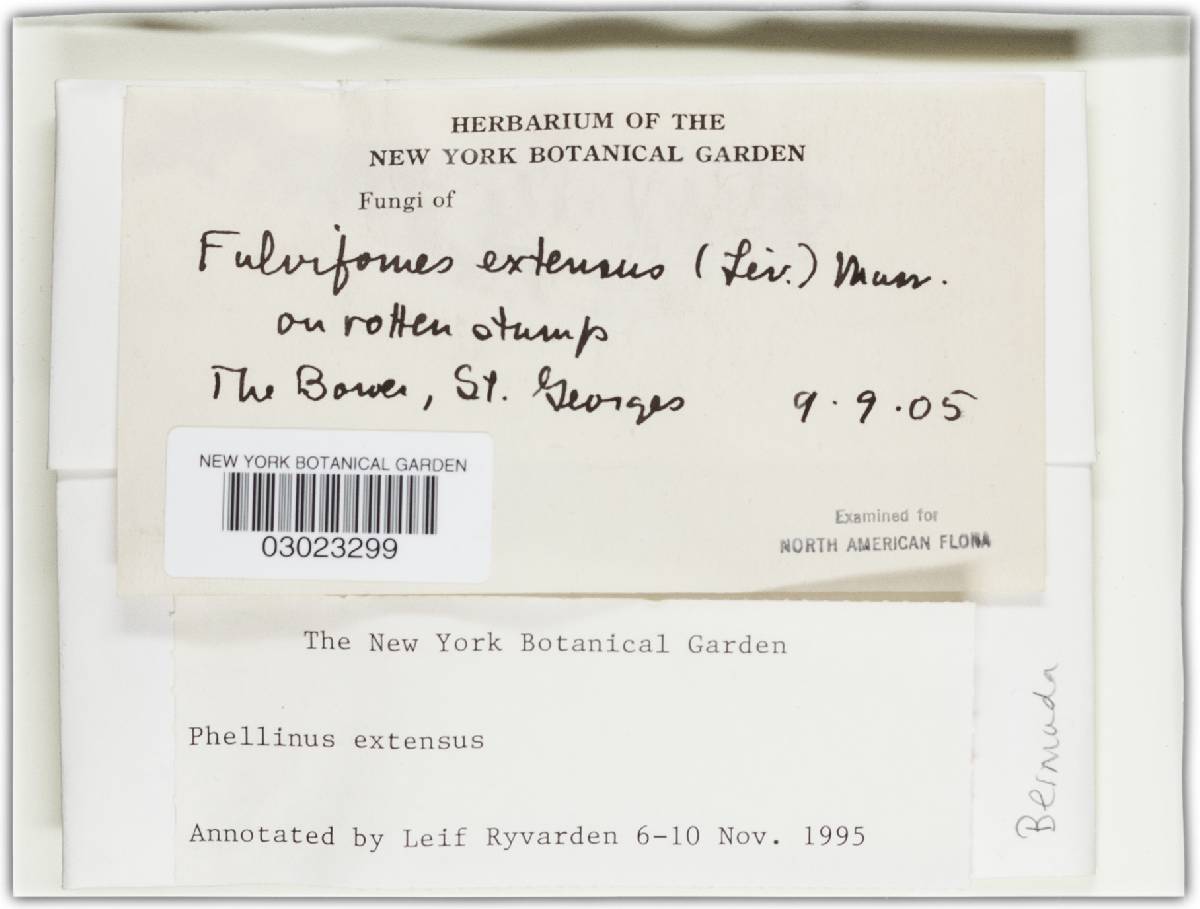 HERBARIUM OF THE
NEW YORK BOTANICAL GARDEN
Fungi of
Fulvifomes extensus (Lév.) Murr.
on rotten stump
The Bower, St. Georges 9.9.05
NEW YORK BOTANICAL GARDEN
03023299
Examined for
NORTH AMERICAN FLORA
The New York Botanical Garden
Phellinus extensus
Annotated by Leif Ryvarden 6-10 Nov. 1995
Bermuda